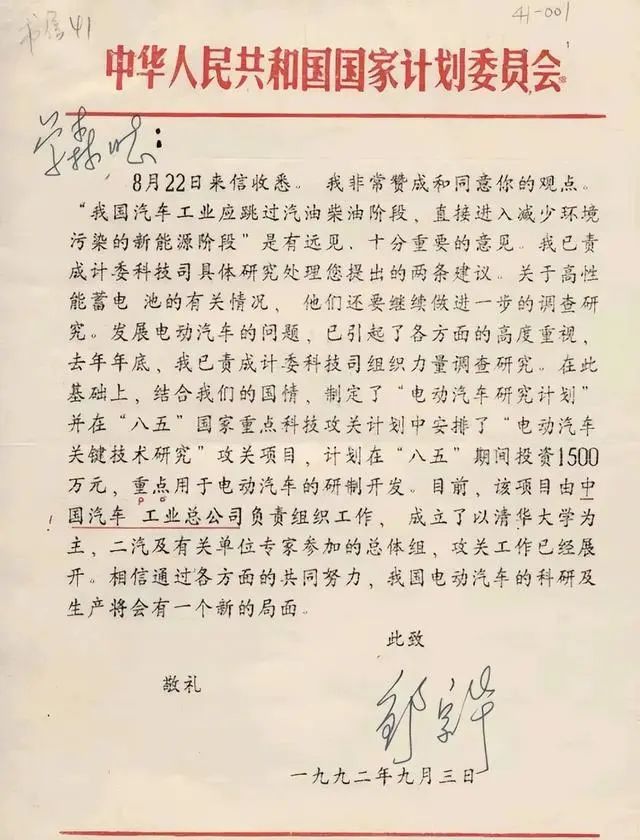 书信41
41-001
中华人民共和国国家计划委员会
学森同志：
8月22日来信收悉。我非常赞成和同意你的观点。
“我国汽车工业应跳过汽油柴油阶段，直接进入减少环境
污染的新能源阶段”是有远见、十分重要的意见。我已责
成计委科技司具体研究处理您提出的两条建议。关于高性
能蓄电 池的有关情况， 他们还要继续做进一步的调查研
究。发展电动汽车的问题，已引起了各方面的高度重视，
去年年底，我已责成计委科技司组织力量调查研究。在此
基础上，结合我们的国情，制定了“电动汽车研究计划”
并在“八五”国家重点科技攻关计划中安排了“电动汽车
关键技术研究”攻关项目，计划在“八五”期间投资1500
万元，重点用于电动汽车的研制开发。目前，该项目由中
国汽车 工业总公司负责组织工作， 成立了以清华大学为
主，二汽及有关单位专家参加的总体组，攻关工作已经展
开。相信通过各方面的共同努力，我国电动汽车的科研及
生产将会有一个新的局面。
此致
敬礼
邹家华
一九九二年九月三日